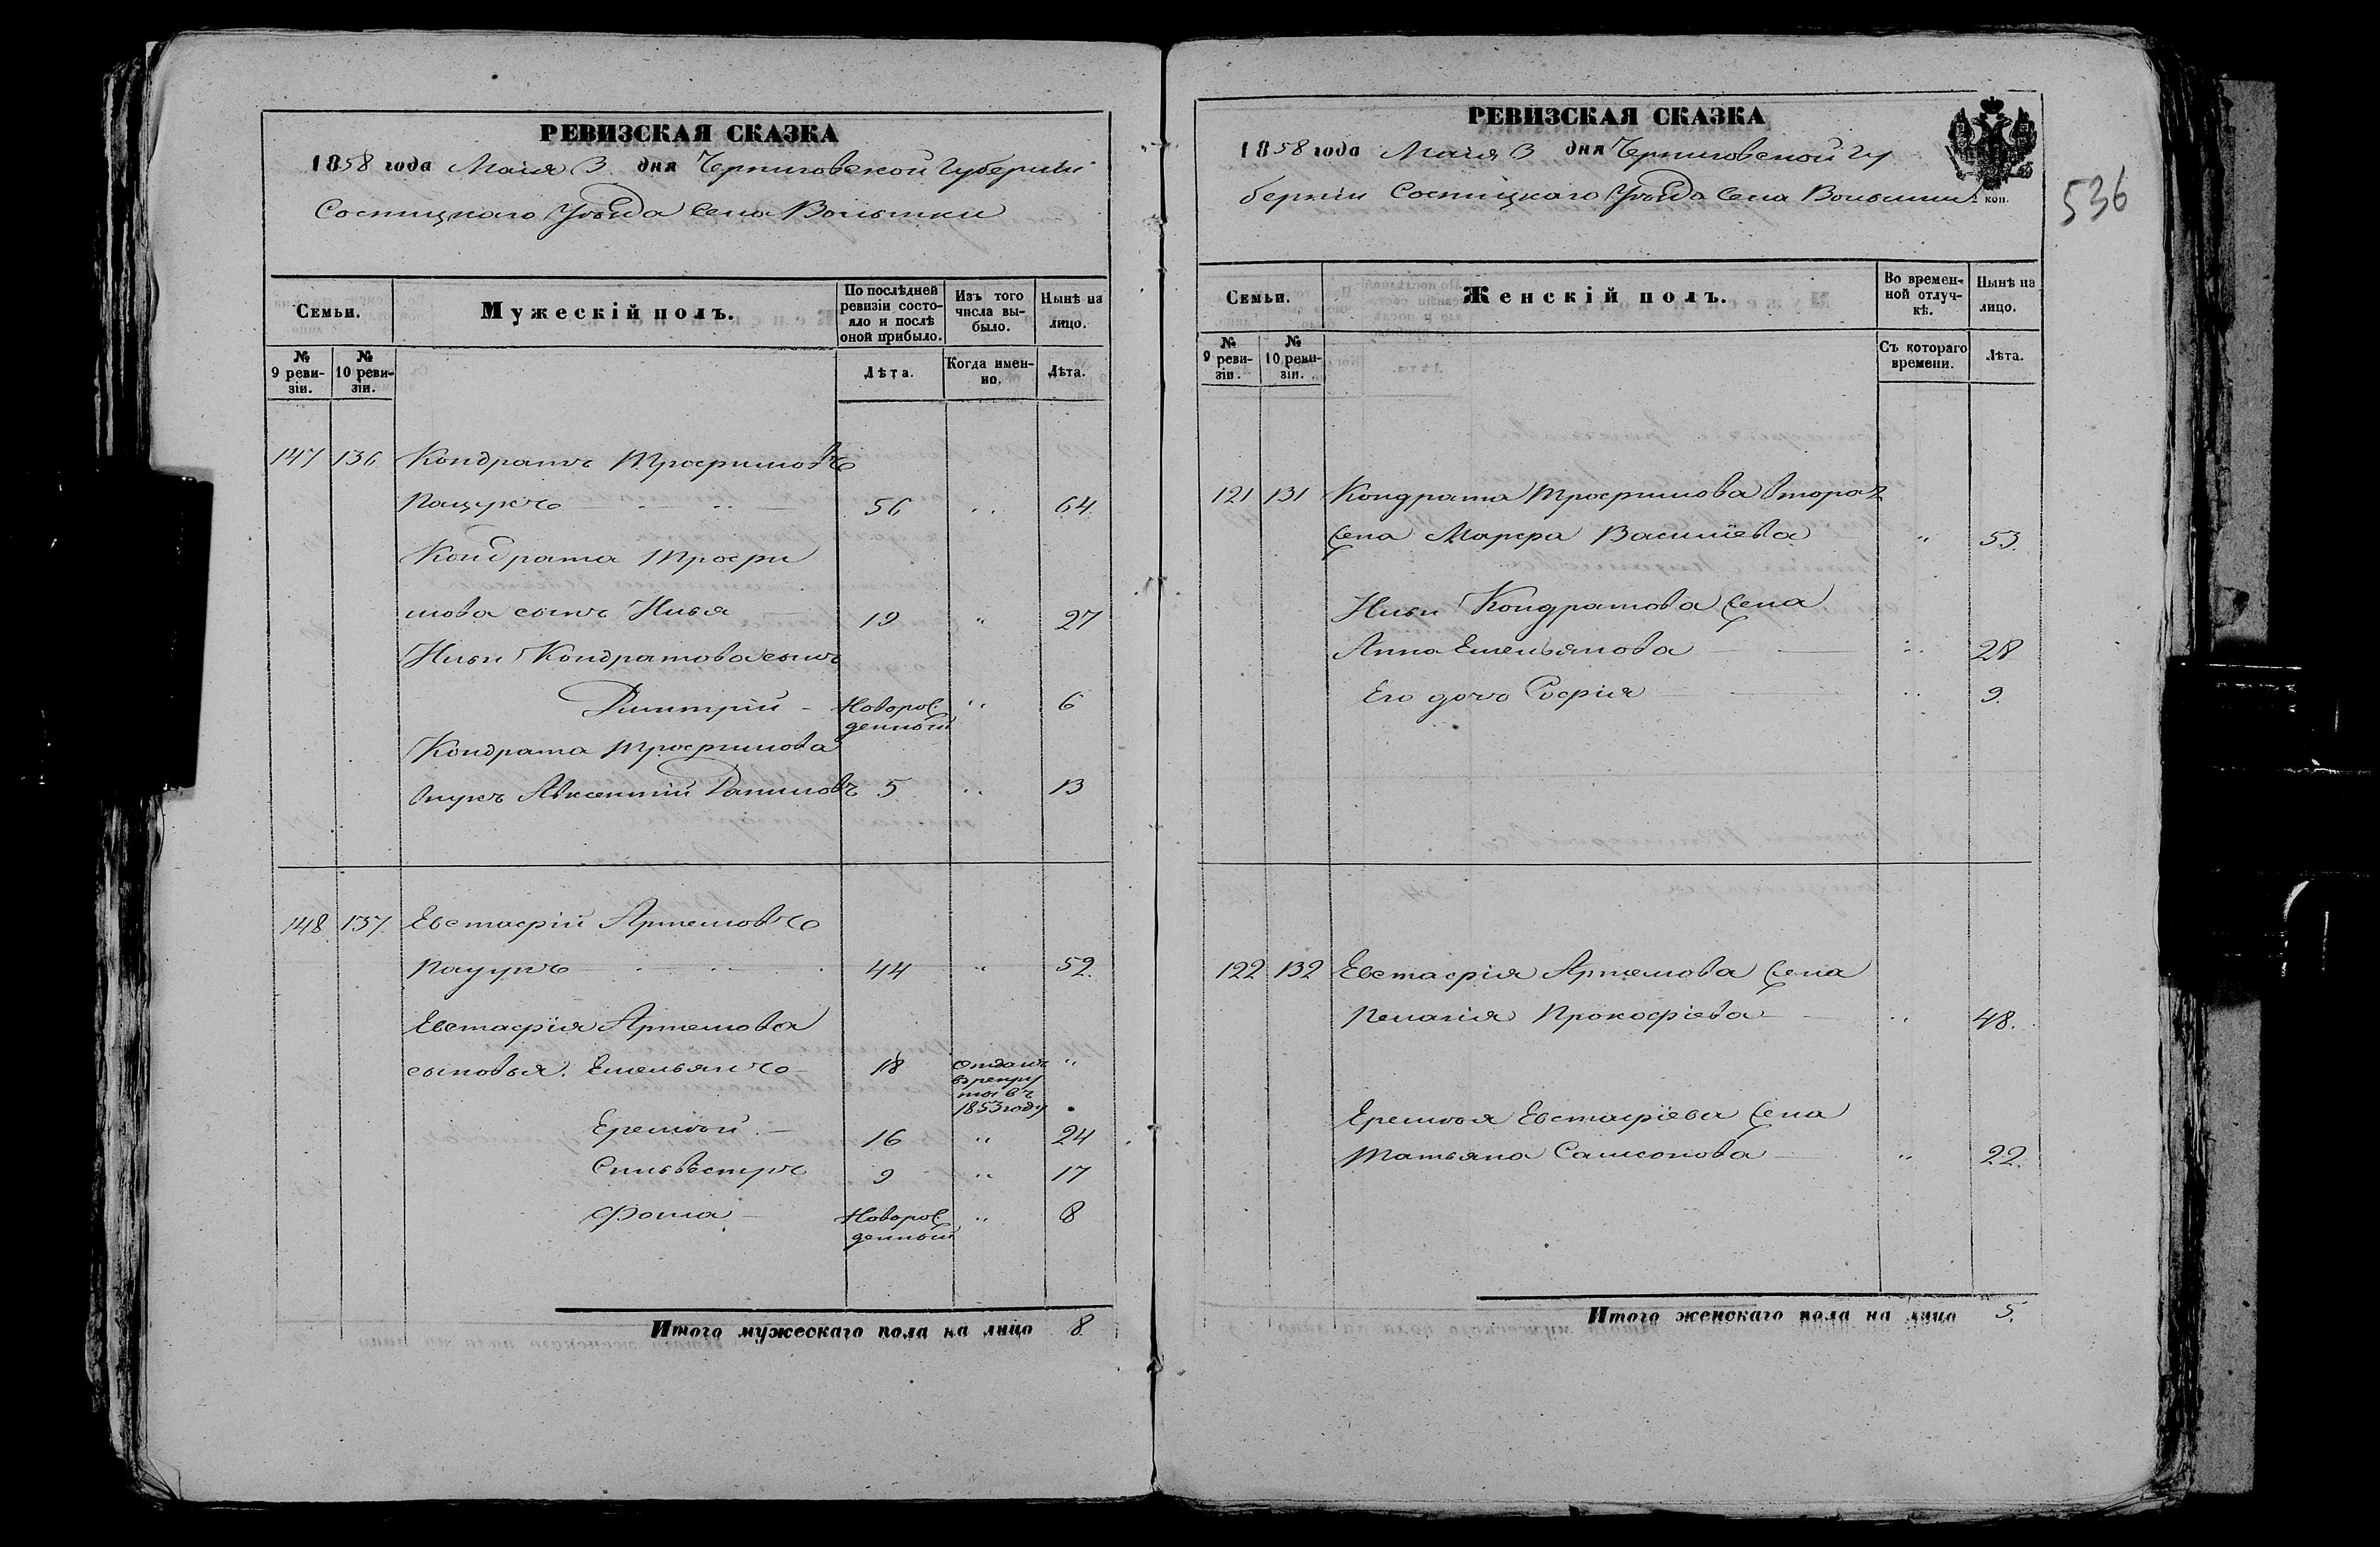 РЕВИЗСКАЯ СКАЗКА
1858 года Маія 3 дня Черниговской Губерніи
Сосницкаго Уѣзда Села Волынки
Семьи.
Мужескій полъ.
По послѣдней ревизіи состояло и послѣ оной прибыло.
Изъ того числа выбыло.
Нынѣ на лицо.
№ 9 ревизіи.
№ 10 ревизіи.
Лѣта.
Когда именно.
Лѣта.
147 136 Кондратъ Трофимовъ
Пацукъ 56 „ 64
Кондрата Трофи
мова сынъ Илья 19 „ 27
Ильи Кондратова сынъ
Димитрій Новорож „ 6
денный
Кондрата Трофимова
внукъ Авксентій Даниловъ 5 „ 13
148 137 Евстафій Артемовъ
Пацукъ 44 „ 52.
Евстафія Артемова
сыновья. Емельянъ 18 Отданъ „
въ рекру
ты въ
1853 году
Еремѣй 16 „ 24
Сильвестръ 9 „ 17
Фома Новорож „ 8
денный
Итого мужескаго пола на лицо 8
РЕВИЗСКАЯ СКАЗКА
1858 года Маія 3 дня Черниговской Гу
берніи Сосницкаго Уѣзда Села Волынки
коп.
536
Семьи.
Женскій полъ.
Во временной отлучкѣ.
Нынѣ на лицо.
№ 9 ревизіи.
№ 10 ревизіи.
Съ котораго времени.
Лѣта.
121 131 Кондрата Трофимова вторая
жена Марфа Василіева „ 53.
Ильи Кондратова жена
Анна Емельянова „ 28
Его дочь Софія „ 9.
122 132 Евстафія Артемова жена
Пелагія Прокофіева „ 48.
Еремѣя Евстафіева жена
Татьяна Самсонова „ 22.
Итого женскаго пола на лицо 5.